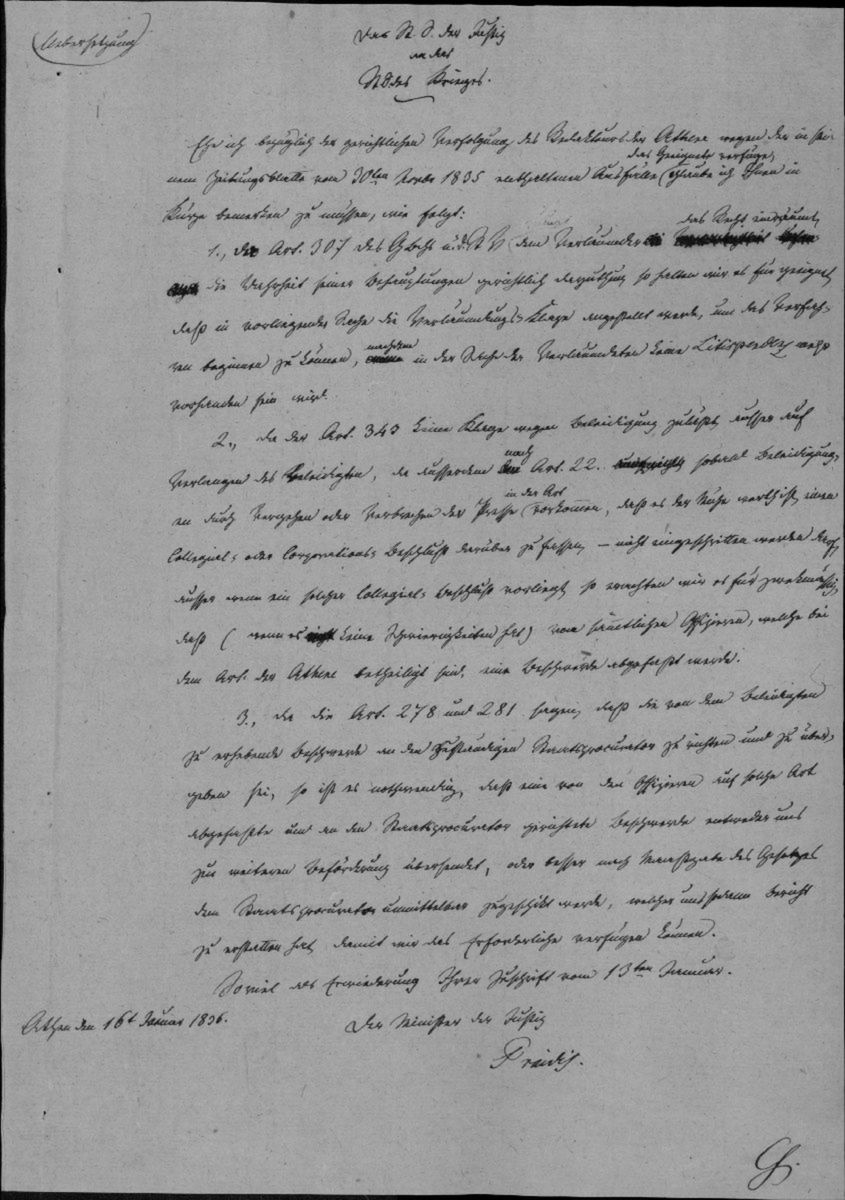 Uebersetzung
Das St. S. der Justiz
an das
StS des Krieges.
Ehe ich bezüglich der gerichtlichen Verfolgung des Redakteurs der Athene wegen der in sei-
das Geeignete verfüge,
nem Zeitungsblatte vom 30ten Novbr 1835 enthaltenen Ausfälle glaube ich Ihnen in
Kürze bemerken zu müssen, wie folgt:
das Recht einräumt,
1., Art. 307 des dem Verläumder
die Wahrheit seiner Behauptungen gerichtlich darzuthun, so halten wir es für geeignet
daß in vorliegender Sache die Verläumdungs-Klage angestellt werde, um das Verfah-
nachdem
ren beginnen zu können, in der Sache der Verläumdeten keine Litispendez mehr
vorhanden sein wird.
2., da der Art. 343 keine Klage wegen Beleidigung zuläßt, ausser auf
nach
Verlangen des Beleidigten, da ausserdem Art. 22. sobald Beleidigung-
in der Art
en durch Vergehen oder Verbrechen der Presse vorkommen, daß es der Mühe werth ist, einen
Collegial- oder Corporations-Beschluß darüber zu fassen, – nicht eingeschritten werden darf,
ausser wenn ein solcher Collegial-Beschluß vorliegt, so erachten wir es für zweckmäßig,
daß (wenn es keine Schwierigkeiten hat) von sämtlichen Offizieren, welche bei
dem Art. der Athene betheiligt sind, eine Beschwerde abgefaßt werde.
3., da die Art. 278 und 281 sagen, daß die von dem Beleidigten
zu erhebende Beschwerde an den zuständigen Staatsprocurator zu richten und zu über-
geben sei, so ist es nothwendig, daß eine von den Offizieren auf solche Art
abgefaßte und an den Staatsprocurator gerichtete Beschwerde entweder uns
zur weiteren Beförderung übersendet, oder besser nach Maaßgabe des Gesetzes
dem Staatsprocurator unmittelbar zugeschickt werde, welcher uns sodann Bericht
zu erstatten hat, damit wir das Erforderliche verfügen können.
Soviel als Erwiederung Ihrer Zuschrift vom 13ten Januar.
Athen den 16t Januar 1836.
Der Minister der Justiz
Praidis.